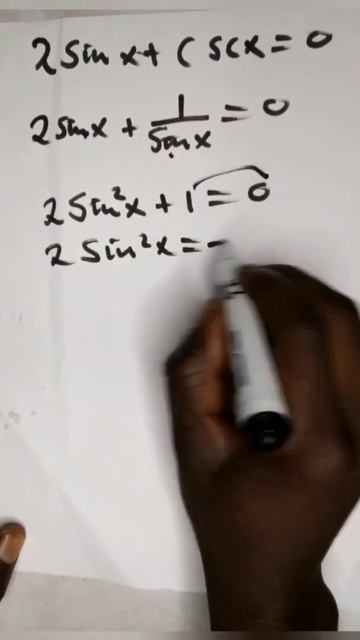 2 Sin x + CSCX = 0
2 sin x + 1/Sin x = 0
2 Sin²x + 1 = 0
2 Sin²x = -